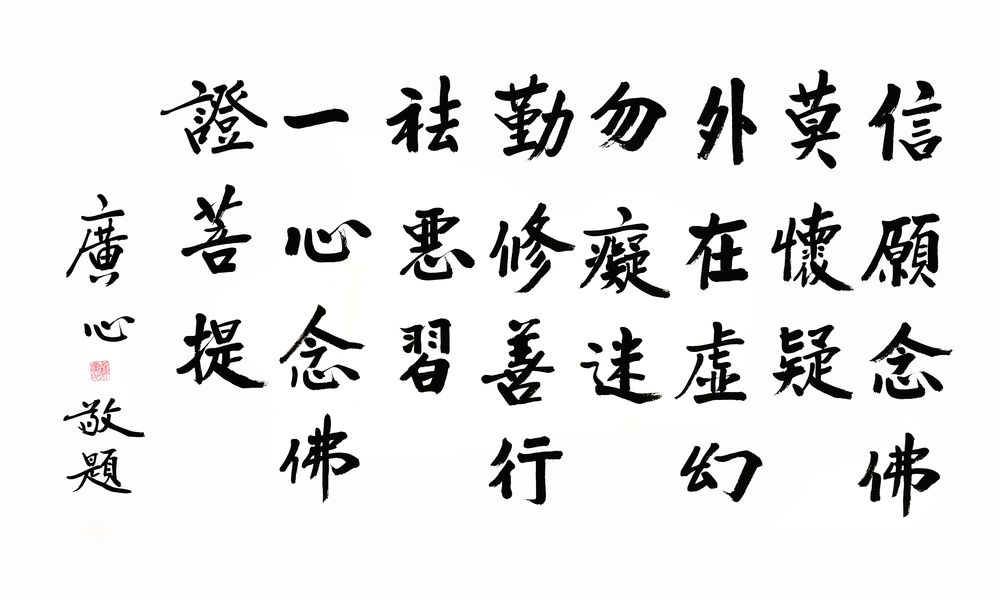 信願念佛
莫懷疑
外在虛幻
勿癡迷
勤修善行
祛惡習
一心念佛
證菩提
廣心敬題